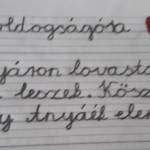 oldogságosa
yáron lovasta
. leszek. Kösz
y Anyáék elen